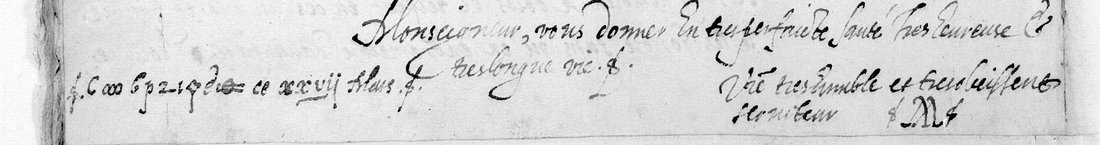 Monseigneur, vous donner En tresperfaicte santé Tresheureuse &
treslongue vie .$.
ce xxvij Mars .$.
Vr̃e treshumble et tresobeissent
seruiteur $M$